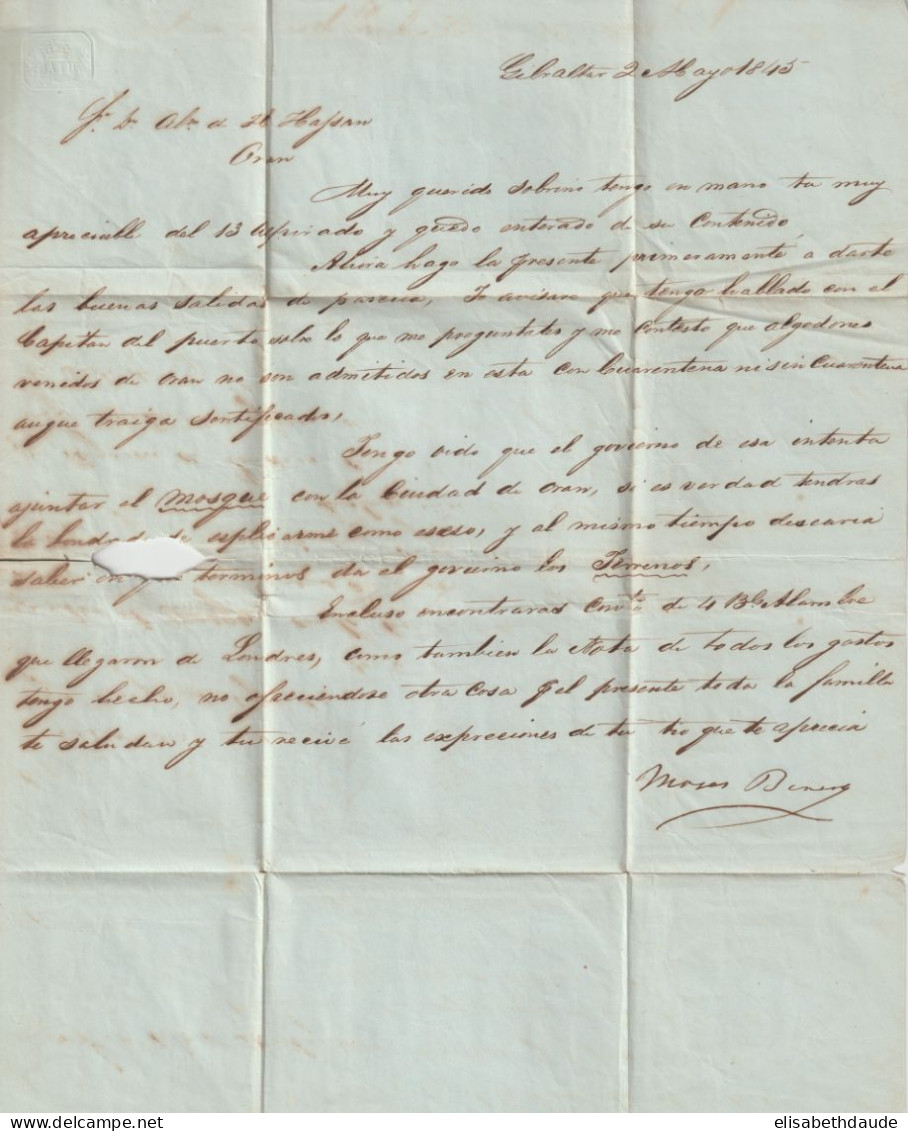 Gibraltar 2 Mayo 1845
Sr. Dn. Abm. d H. Hassan
Oran
Muy querido sobrino tengo en mano tu muy
apreciable del 13 espirado y quedo enterado de su contenido,
Ahora hago la presente primeramente a darte
las buenas salidas de pascua, Te avisare que tengo hallado con el
Capitan del puerto sobre lo que me preguntates y me contesto que algodones
venidos de Oran no son admitidos en esta con Cuarentena ni sin Cuarentena
auque traiga sertificados,
Tengo oido que el govierno de esa intenta
ajuntar el Mosque con la Ciudad de Oran, si es verdad tendras
la bondad de esplicarme como es eso, y al mismo tiempo descaria
saber en que terminos da el govierno los Terrenos,
Encluso encontraras conta. de 4 Bls Alambre
que llegaron de Londres, como tambien la Nota de todos los gastos
tengo hecho, no ofreciendose otra cosa pel presente toda la familla
te saludan y tu recive las expreciones de tu tio que te aprecia
Moses
elisabethdaude